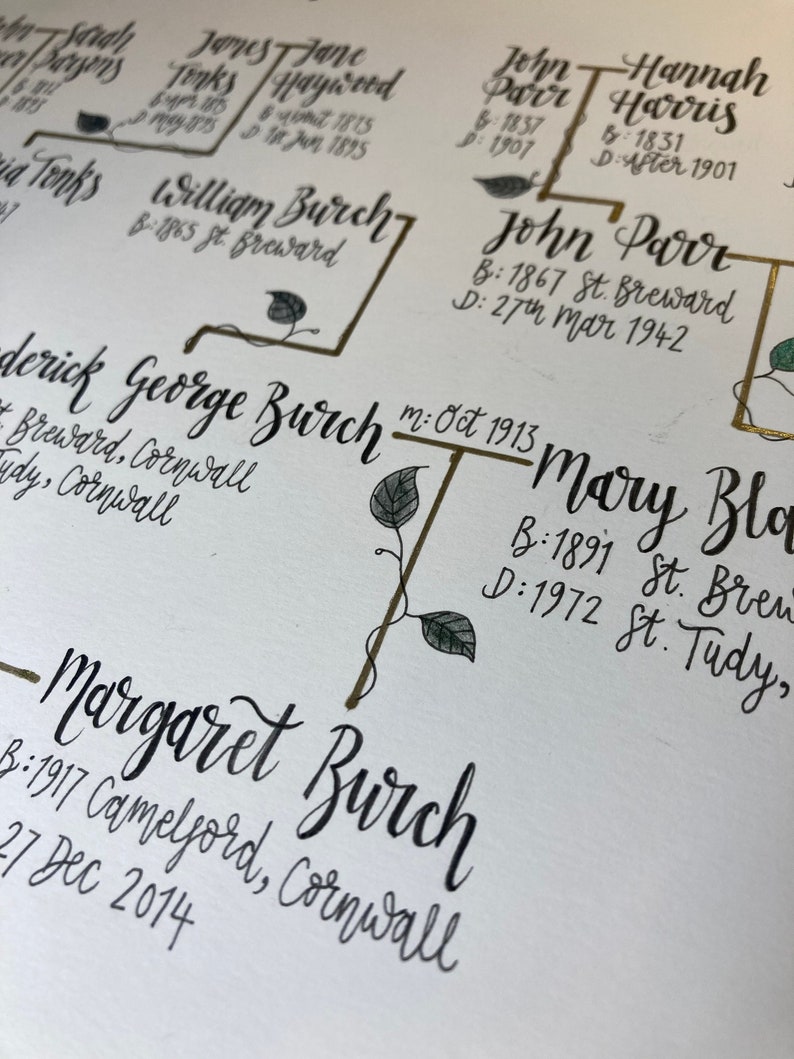 Sarah
Parsons
James
Tonks
D: May 1895
Jane
Haywood
D: 1st Jun 1895
John
Parr
B: 1837
D: 1907
Hannah
Harris
B: 1831
D: After 1901
Tonks
William Burch
B: 1865 St. Breward
John Parr
B: 1867 St. Breward
D: 27th Mar 1942
George Burch
Breward, Cornwall
Tudy, Cornwall
m: Oct 1913
Mary
B: 1891 St.
D: 1972 St. Tudy,
Margaret Burch
B: 1917 Camelford, Cornwall
27 Dec 2014